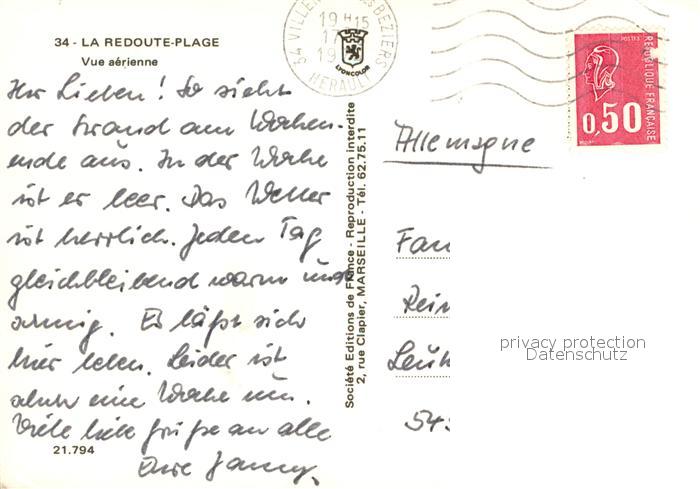 34 - LA REDOUTE-PLAGE
Vue aérienne
Ihr Lieben! So sieht
der Strand am Wochen-
ende aus. In der Woche
ist er leer. Das Wetter
ist herrlich. Jeden Tag
gleichbleibend warm und
sonnig. Es läßt sich
hier leben. Leider ist
schon eine Woche um.
Viele liebe Grüße an alle
Eure
21.794
Société Editions de France - Reproduction interdite
2, rue Clapier, MARSEILLE - Tél. 62.75.11
LYONCOLOR
19 H 15
HERAULT
POSTES
REPUBLIQUE FRANÇAISE
0,50
Allemagne
Fam
Rein
Leuk
545
privacy protection
Datenschutz